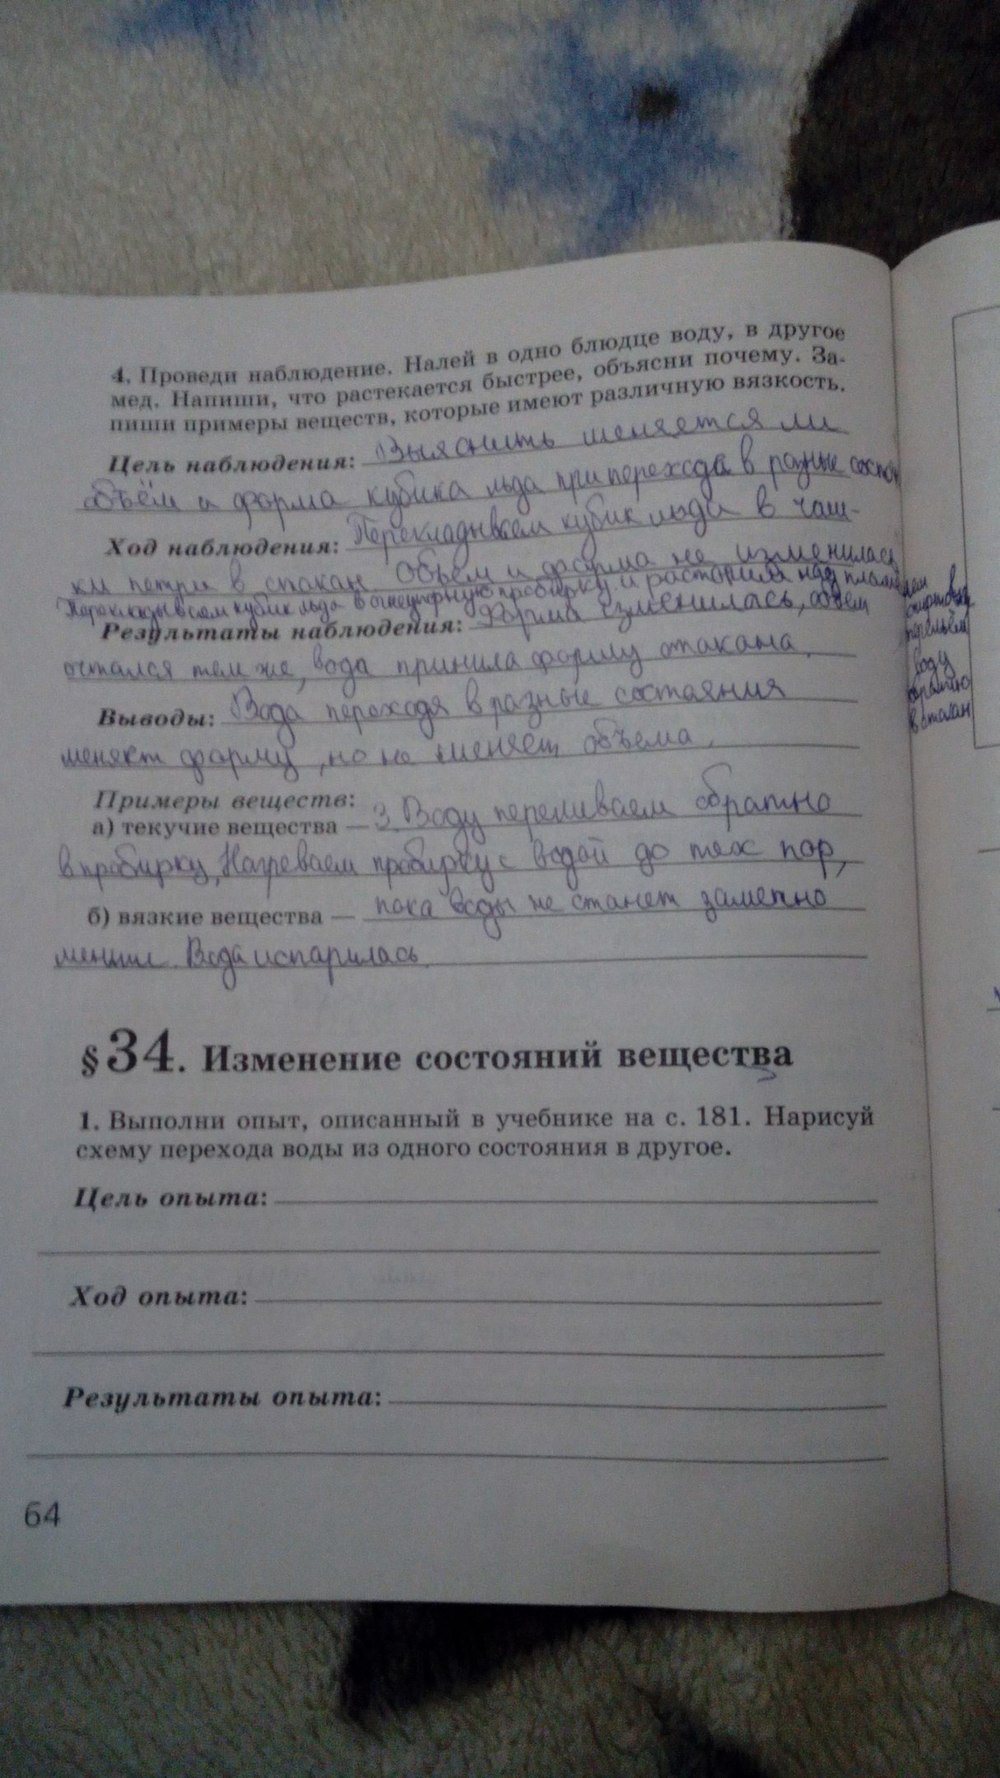 4. Проведи наблюдение. Налей в одно блюдце воду, в другое
мед. Напиши, что растекается быстрее, объясни почему. За-
пиши примеры веществ, которые имеют различную вязкость.
Цель наблюдения: Выяснить меняется ли
объём и форма кубика льда при переходе в разные состоя
Ход наблюдения: Перекладываем кубик льда в чаш-
ки петри в стакан Объем и форма не изменилась
Перекладываем кубик льда в огнеупорную пробирку и растопили над пламенем
спиртовки
перельём
воду
обратно
в стакан
Результаты наблюдения: Форма изменилась, объем
остался тем же, вода приняла форму стакана.
Выводы: Вода переходя в разные состояния
меняет форму, но не меняет объема.
Примеры веществ:
а) текучие вещества — 3. Воду переливаем обратно
в пробирку, Нагреваем пробирку с водой до тех пор,
б) вязкие вещества — пока воды не станет заметно
меньше. Вода испарилась
§ 34. Изменение состояний вещества
1. Выполни опыт, описанный в учебнике на с. 181. Нарисуй
схему перехода воды из одного состояния в другое.
Цель опыта:
Ход опыта:
Результаты опыта:
64